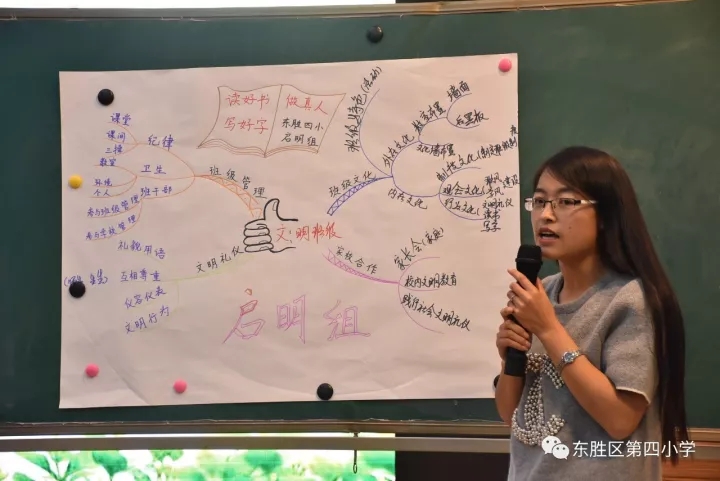 读好书
写好字
做真人
东胜四小
启明组
课堂
课间
三操
纪律
教室
环境
个人
卫生
班干部
参与班级管理
参与学校管理
班级管理
礼貌用语
互相尊重
仪容仪表
文明行为
文明礼仪
文明班级
班级文化
班级特色
外在文化
教室布置
墙面
后黑板
文化墙布置
内在文化
制度文化
观念文化
行为文化
班风
学风
建设
文明礼仪
读书
写字
家校合作
家长会(家庭)
校内文明教育
践行社会文明礼仪
启明组
东胜区第四小学